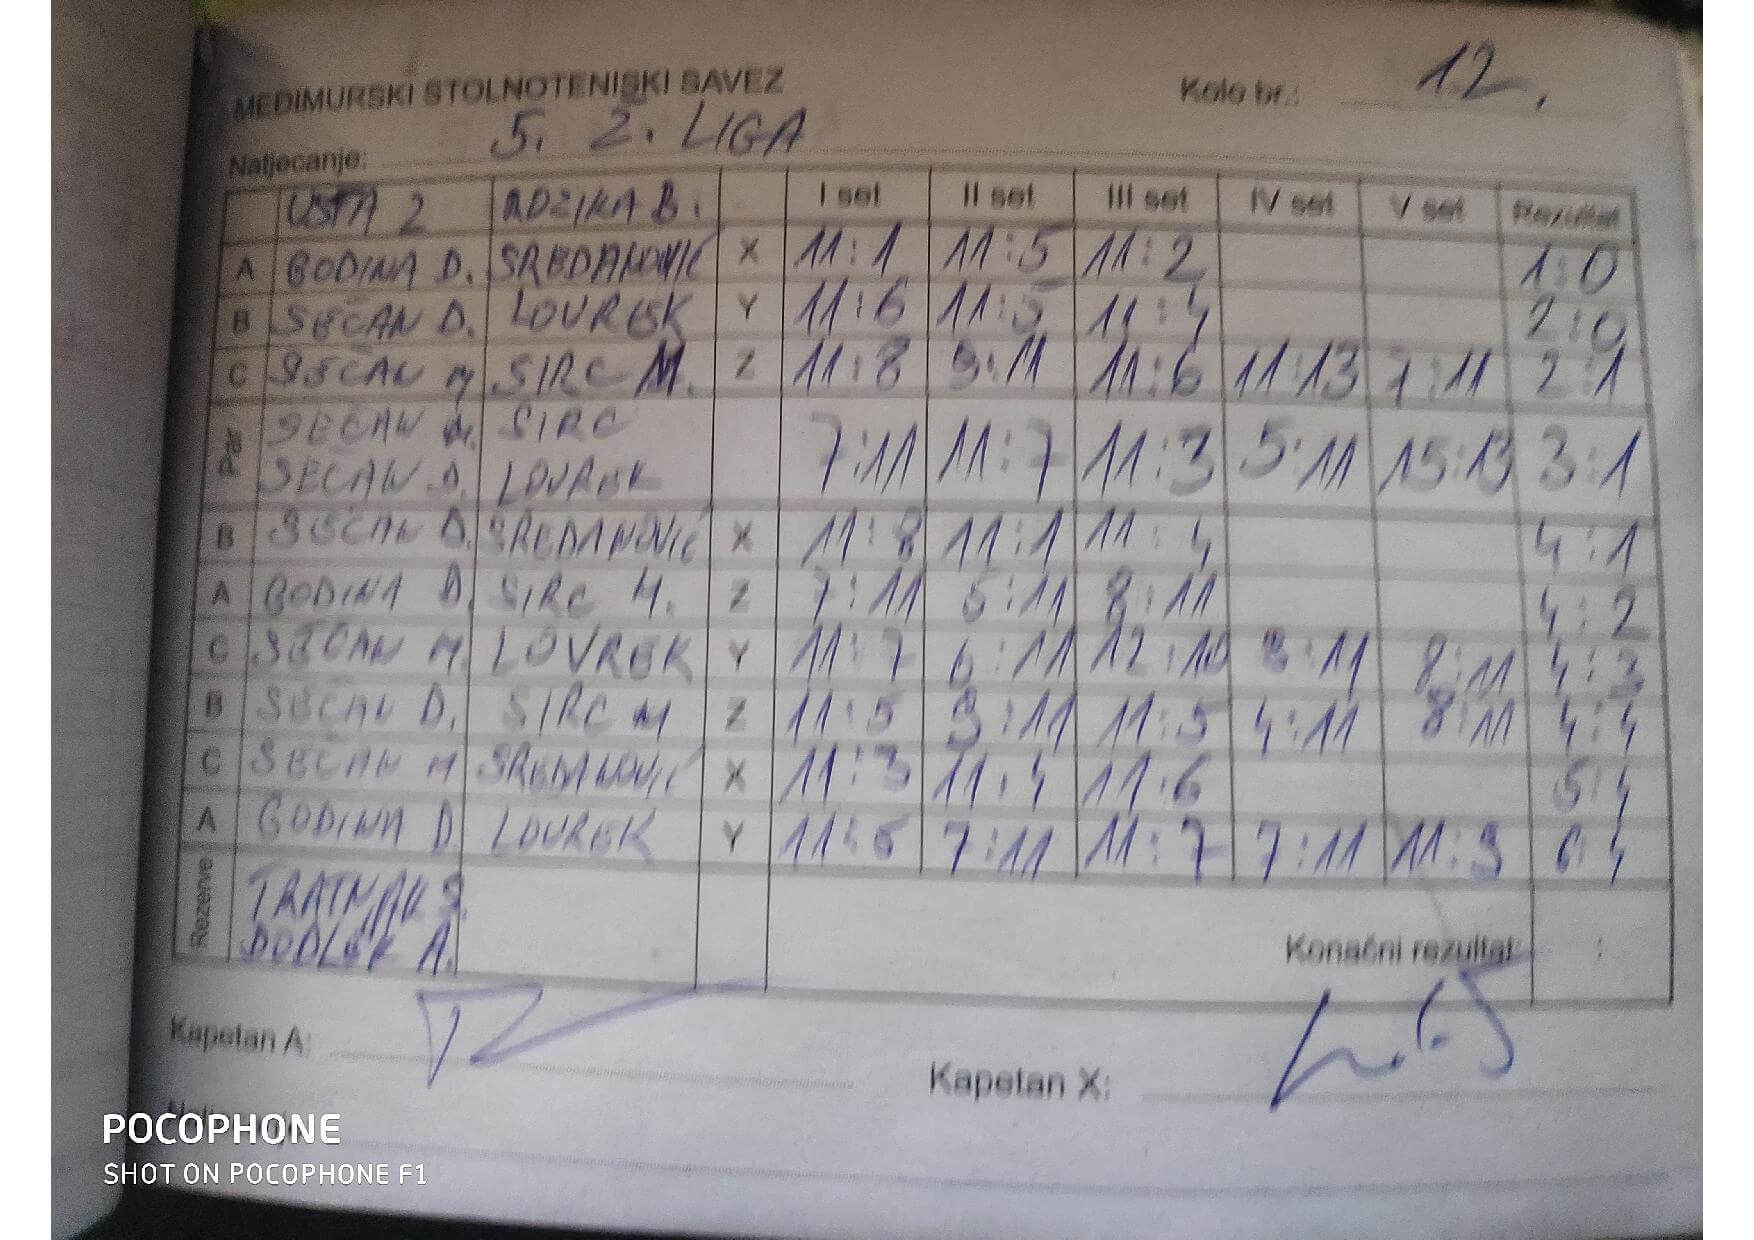 MEĐIMURSKI STOLNOTENISKI SAVEZ
Kolo br.: 12.
Natjecanje: 5. Ž. LIGA
USTA 2 ADŽIKA B. I set II set III set IV set V set Rezultat
A GODINA D. SREDANOVIĆ X 11:1 11:5 11:2 1:0
B SEČAN D. LOVREK Y 11:6 11:5 11:4 2:0
C SEČAN M SIRC M. Z 11:8 9:11 11:6 11:13 7:11 2:1
Par SEČAN M. SIRC 7:11 11:7 11:3 5:11 15:13 3:1
SEČAN D. LOVREK
B SEČAN D. SREDANOVIĆ X 11:8 11:1 11:4 4:1
A GODINA D. SIRC M. Z 7:11 5:11 8:11 4:2
C SEČAN M. LOVREK Y 11:7 6:11 12:10 8:11 8:11 4:3
B SEČAN D. SIRC M Z 11:5 9:11 11:5 4:11 8:11 4:4
C SEČAN M SREDANOVIĆ X 11:3 11:4 11:6 5:4
A GODINA D. LOVREK Y 11:6 7:11 11:7 7:11 11:9 6:4
Rezerve TRATNJAK S.
DODLEK A.
Konačni rezultat: :
Kapetan A:
Kapetan X:
POCOPHONE
SHOT ON POCOPHONE F1